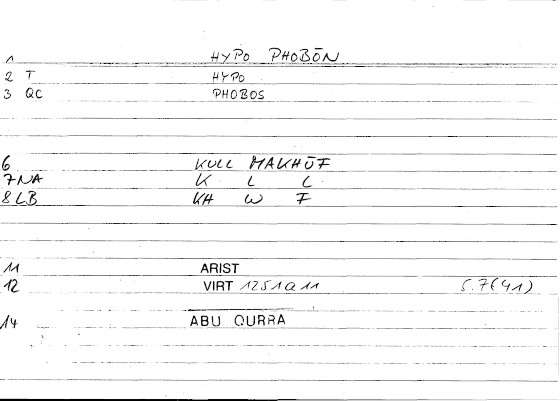 1 HYPO PHOBŌN
2 T HYPO
3 QC PHOBOS
6 KULL MAKHŪF
7 NA K L L
8 LB KH W F
11 ARIST
12 VIRT 1251a11 5.7(41)
14 ABU QURRA